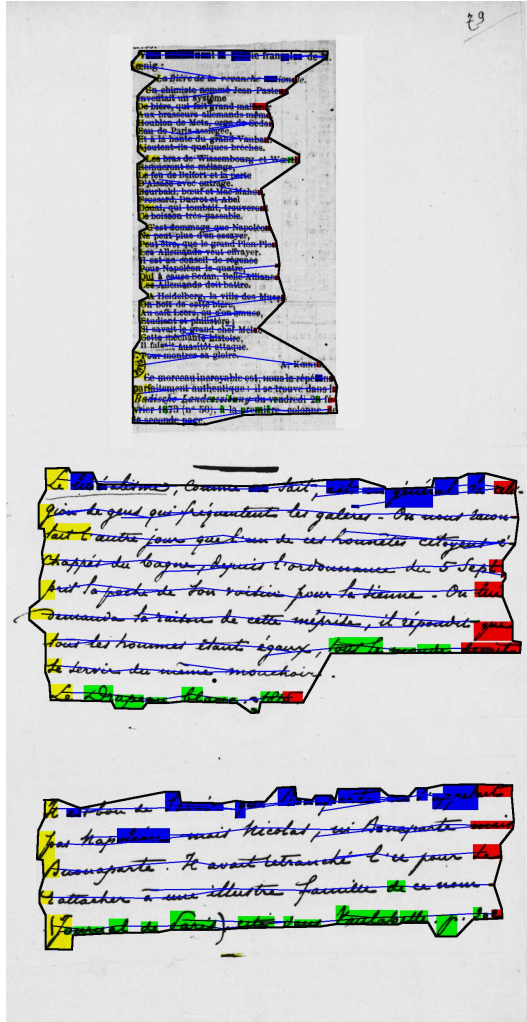 79
La Bière de la revanche
Un chimiste nommé Jean Pasteur
Inventait un système
De bière, qui fait grand mal
Aux brasseurs allemands même
Houblon de Metz, orge de Sedan
Eau de Paris assiégée,
Et à la honte du grand Vauban
Ajoutent-ils quelques brèches.
Les bras de Wissembourg et Wœrth
Remueront ce mélange,
Le feu de Belfort et la perte
D'Alsace avec outrage.
Bourbaki, bœuf et Mac-Mahon
Frossard, Ducrot et Abel
Douai, qui tombait, trouveront
Ce boisson très-passable.
C'est dommage que Napoléon
Ne peut plus d'en essayer,
Peut-être, que le grand Plon-Plon
Les Allemands veut effrayer.
Il est au conseil de régence
Pour Napoléon le quatre,
Qui à cause Sedan, Belle-Alliance
Les Allemands doit battre.
A Heidelberg, la ville des Muses
On boit de cette bière,
Au café Leers, on s'en amuse,
Etudiant et philistère;
Si savait le grand chef Mélac
Cette méchante histoire,
Il aussitôt attaque
Pour montrer sa gloire.
Ce morceau incroyable est, nous le répétons
parfaitement authentique: il se trouve dans la
Badische Landeszeitung du vendredi 28 fé-
vrier 1873 (n° 50), à la première colonne de
la seconde page.
Le libéralisme, comme on sait, est en général la reli-
gion de gens qui fréquentent les galères - On nous racon-
tait l'autre jour que l'un de ces honnêtes citoyens é-
chappés du bagne, depuis l'ordonnance du 5 Sept
prit la poche de son voisin pour la sienne On lui
demanda la raison de cette méprise, il répondit que
tous les hommes étant égaux, tout le monde devait
se servir du même mouchoir.
Le Drapeau blanc.
Il est bon de
pas Napoléon mais Nicolas, ni Bonaparte mais
Buonaparte. Il avait retranché l'u pour se
rattacher à une illustre famille de ce nom
(Journal de Paris), cité dans Vaulabelle. p.